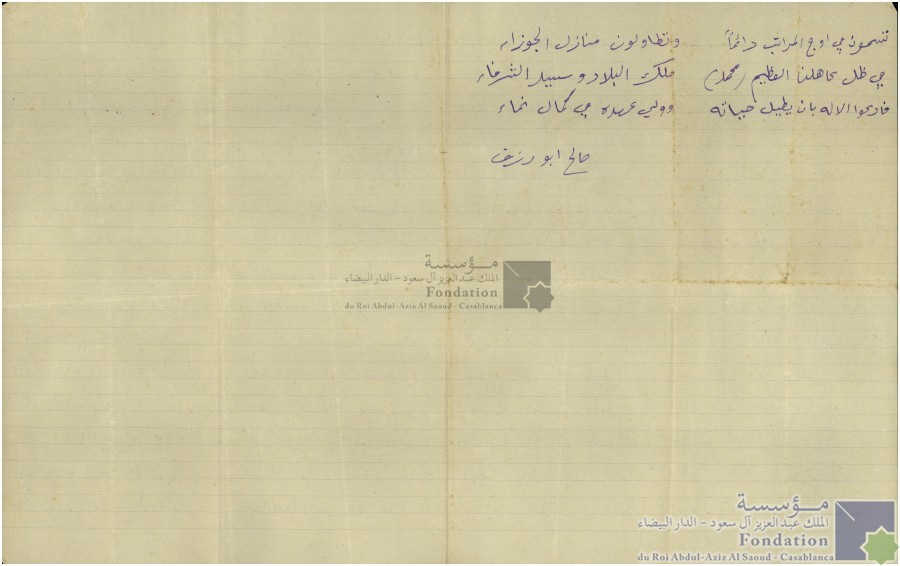 تتسمون في اوج المراتب دائماً وتطاولون منازل الجوزاء
في ظل عاهلنا العظيم (محمد) ملك البلاد و سبيد الشرفاء
فادعوا الاله بان يطيل حياته وولي عهده في كمال نماء
صالح ابو رزق
مؤسسة
الملك عبدالعزيز آل سعود - الدار البيضاء
Fondation
du Roi Abdul-Aziz Al Saoud - Casablanca
مؤسسة
الملك عبدالعزيز آل سعود - الدار البيضاء
Fondation
du Roi Abdul-Aziz Al Saoud - Casablanca